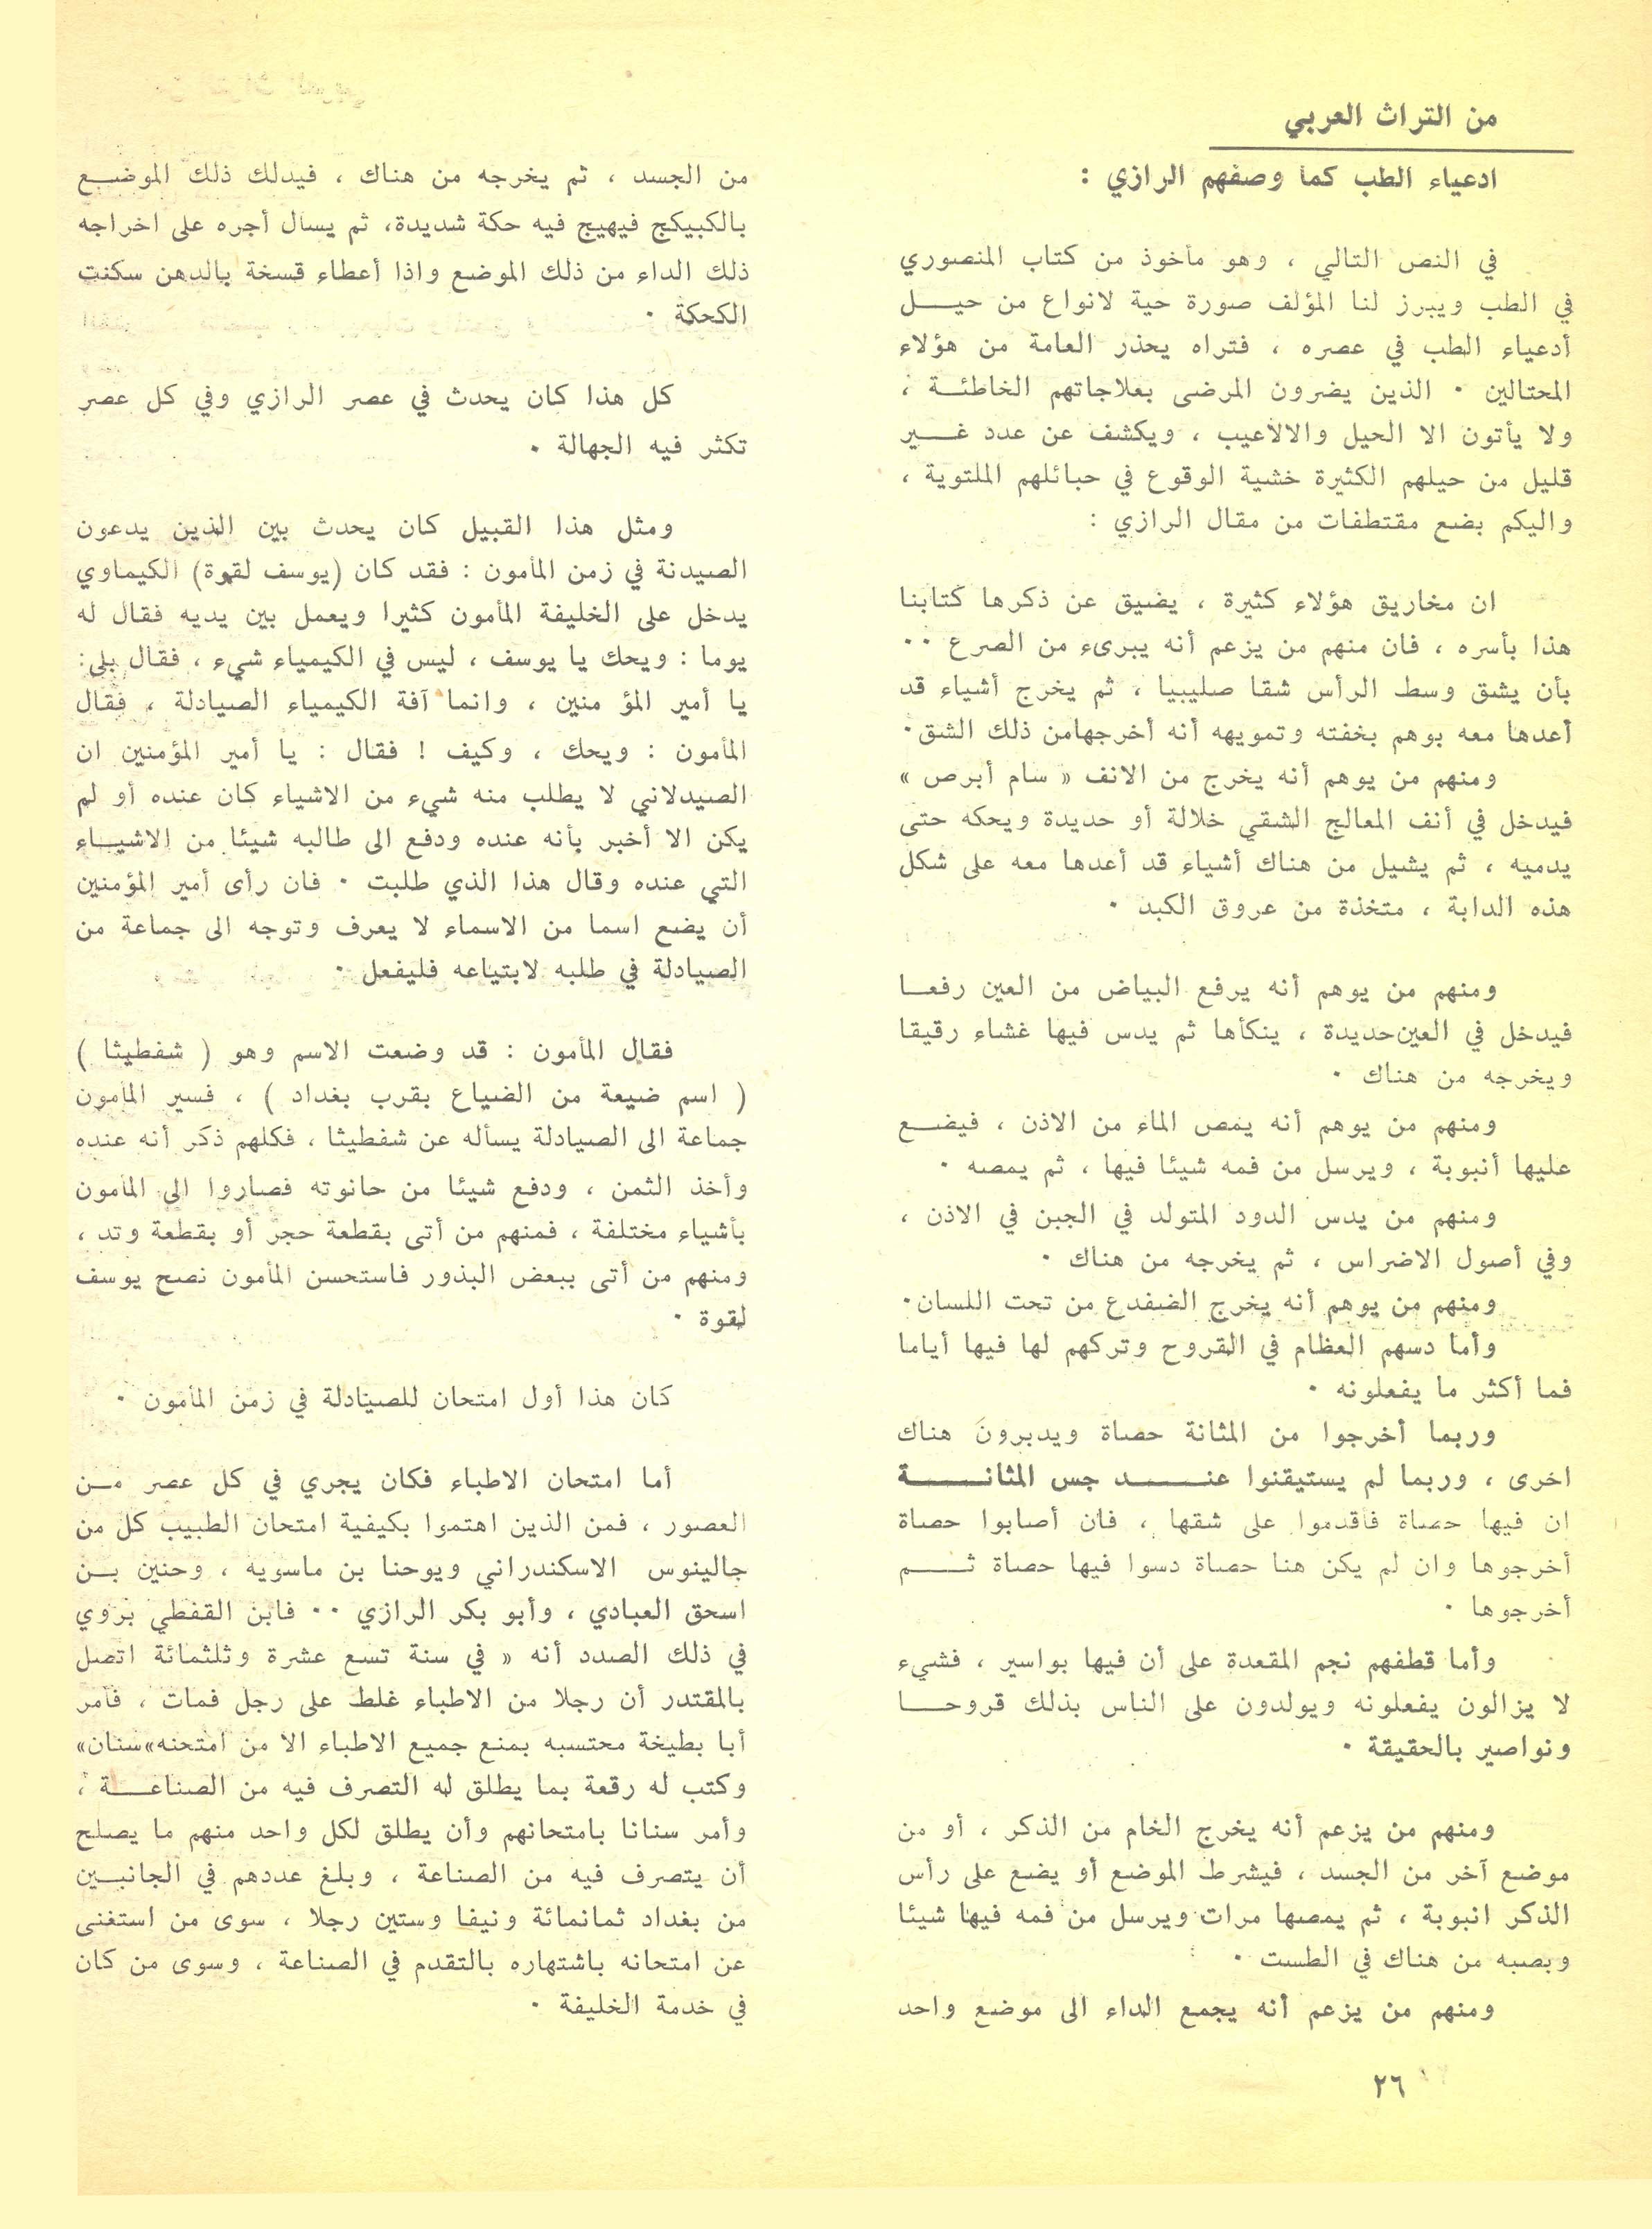 من التراث العربي
ادعياء الطب كما وصفهم الرازي :
في النص التالي ، وهو مأخوذ من كتاب المنصوري
في الطب ويبرز لنا المؤلف صورة حية لانواع من حيــل
أدعياء الطب في عصره ، فتراه يحذر العامة من هؤلاء
المحتالين ٠ الذين يضرون المرضى بعلاجاتهم الخاطئــة ،
ولا يأتون الا الحيل والالاعيب ، ويكشف عن عدد غــير
قليل من حيلهم الكثيرة خشية الوقوع في حبائلهم الملتوية ،
واليكم بضع مقتطفات من مقال الرازي :
ان مخاريق هؤلاء كثيرة ، يضيق عن ذكرها كتابنا
هذا بأسره ، فان منهم من يزعم أنه يبرىء من الصرع ٠٠
بأن يشق وسط الرأس شقا صليبيا ، ثم يخرج أشياء قد
أعدها معه بوهم بخفته وتمويهه أنه أخرجهامن ذلك الشق٠
ومنهم من يوهم أنه يخرج من الانف « سام أبرص »
فيدخل في أنف المعالج الشقي خلالة أو حديدة ويحكه حتى
يدميه ، ثم يشيل من هناك أشياء قد أعدها معه على شكل
هذه الدابة ، متخذة من عروق الكبد ٠
ومنهم من يوهم أنه يرفع البياض من العين رفعــا
فيدخل في العين‌حديدة ، ينكأها ثم يدس فيها غشاء رقيقا
ويخرجه من هناك ٠
ومنهم من يوهم أنه يمص الماء من الاذن ، فيضــع
عليها أنبوبة ، ويرسل من فمه شيئا فيها ، ثم يمصه ٠
ومنهم من يدس الدود المتولد في الجبن في الاذن ،
وفي أصول الاضراس ، ثم يخرجه من هناك ٠
ومنهم من يوهم أنه يخرج الضفدع من تحت اللسان٠
وأما دسهم العظام في القروح وتركهم لها فيها أياما
فما أكثر ما يفعلونه ٠
وربما أخرجوا من المثانة حصاة ويدبرون هناك
اخرى ، وربما لم يستيقنوا عنــــد جس المثانــــة
ان فيها حصاة فاقدموا على شقها ، فان أصابوا حصاة
أخرجوها وان لم يكن هنا حصاة دسوا فيها حصاة ثــم
أخرجوها ٠
وأما قطفهم نجم المقعدة على أن فيها بواسير ، فشيء
لا يزالون يفعلونه ويولدون على الناس بذلك قروحــا
ونواصير بالحقيقة ٠
ومنهم من يزعم أنه يخرج الخام من الذكر ، أو من
موضع آخر من الجسد ، فيشرط الموضع أو يضع على رأس
الذكر انبوبة ، ثم يمصها مرات ويرسل من فمه فيها شيئا
وبصبه من هناك في الطست ٠
ومنهم من يزعم أنه يجمع الداء الى موضع واحد
من الجسد ، ثم يخرجه من هناك ، فيدلك ذلك الموضــع
بالكبيكج فيهيج فيه حكة شديدة، ثم يسأل أجره على اخراجه
ذلك الداء من ذلك الموضع واذا أعطاء قسخة بالدهن سكنت
الكحكة ٠
كل هذا كان يحدث في عصر الرازي وفي كل عصر
تكثر فيه الجهالة ٠
ومثل هذا القبيل كان يحدث بين الذين يدعون
الصيدنة في زمن المأمون : فقد كان (يوسف لقوة) الكيماوي
يدخل على الخليفة المأمون كثيرا ويعمل بين يديه فقال له
يوما : ويحك يا يوسف ، ليس في الكيمياء شيء ، فقال بلى:
يا أمير المؤ منين ، وانما آفة الكيمياء الصيادلة ، فقال
المأمون : ويحك ، وكيف ! فقال : يا أمير المؤمنين ان
الصيدلاني لا يطلب منه شيء من الاشياء كان عنده أو لم
يكن الا أخبر بأنه عنده ودفع الى طالبه شيئا من الاشيــاء
التي عنده وقال هذا الذي طلبت ٠ فان رأى أمير المؤمنين
أن يضع اسما من الاسماء لا يعرف وتوجه الى جماعة من
الصيادلة في طلبه لابتياعه فليفعل ٠
فقال المأمون : قد وضعت الاسم وهو ( شفطيثا )
( اسم ضيعة من الضياع بقرب بغداد ) ، فسير المأمون
جماعة الى الصيادلة يسأله عن شفطيثا ، فكلهم ذكر أنه عنده
وأخذ الثمن ، ودفع شيئا من حانوته فصاروا الى المأمون
بأشياء مختلفة ، فمنهم من أتى بقطعة حجر أو بقطعة وتد ،
ومنهم من أتى ببعض البذور فاستحسن المأمون نصح يوسف
لقوة ٠
كان هذا أول امتحان للصيادلة في زمن المأمون ٠
أما امتحان الاطباء فكان يجري في كل عصر مــن
العصور ، فمن الذين اهتموا بكيفية امتحان الطبيب كل من
جالينوس الاسكندراني ويوحنا بن ماسويه ، وحنين بــن
اسحق العبادي ، وأبو بكر الرازي ٠٠ فابن القفطي بروي
في ذلك الصدد أنه « في سنة تسع عشرة وثلثمائة اتصل
بالمقتدر أن رجلا من الاطباء غلط على رجل فمات ، فأمر
أبا بطيخة محتسبه بمنع جميع الاطباء الا من امتحنه»سنان»
وكتب له رقعة بما يطلق له التصرف فيه من الصناعــة ،
وأمر سنانا بامتحانهم وأن يطلق لكل واحد منهم ما يصلح
أن يتصرف فيه من الصناعة ، وبلغ عددهم في الجانبــين
من بغداد ثمانمائة ونيفا وستين رجلا ، سوى من استغنى
عن امتحانه باشتهاره بالتقدم في الصناعة ، وسوى من كان
في خدمة الخليفة ٠
٢٦